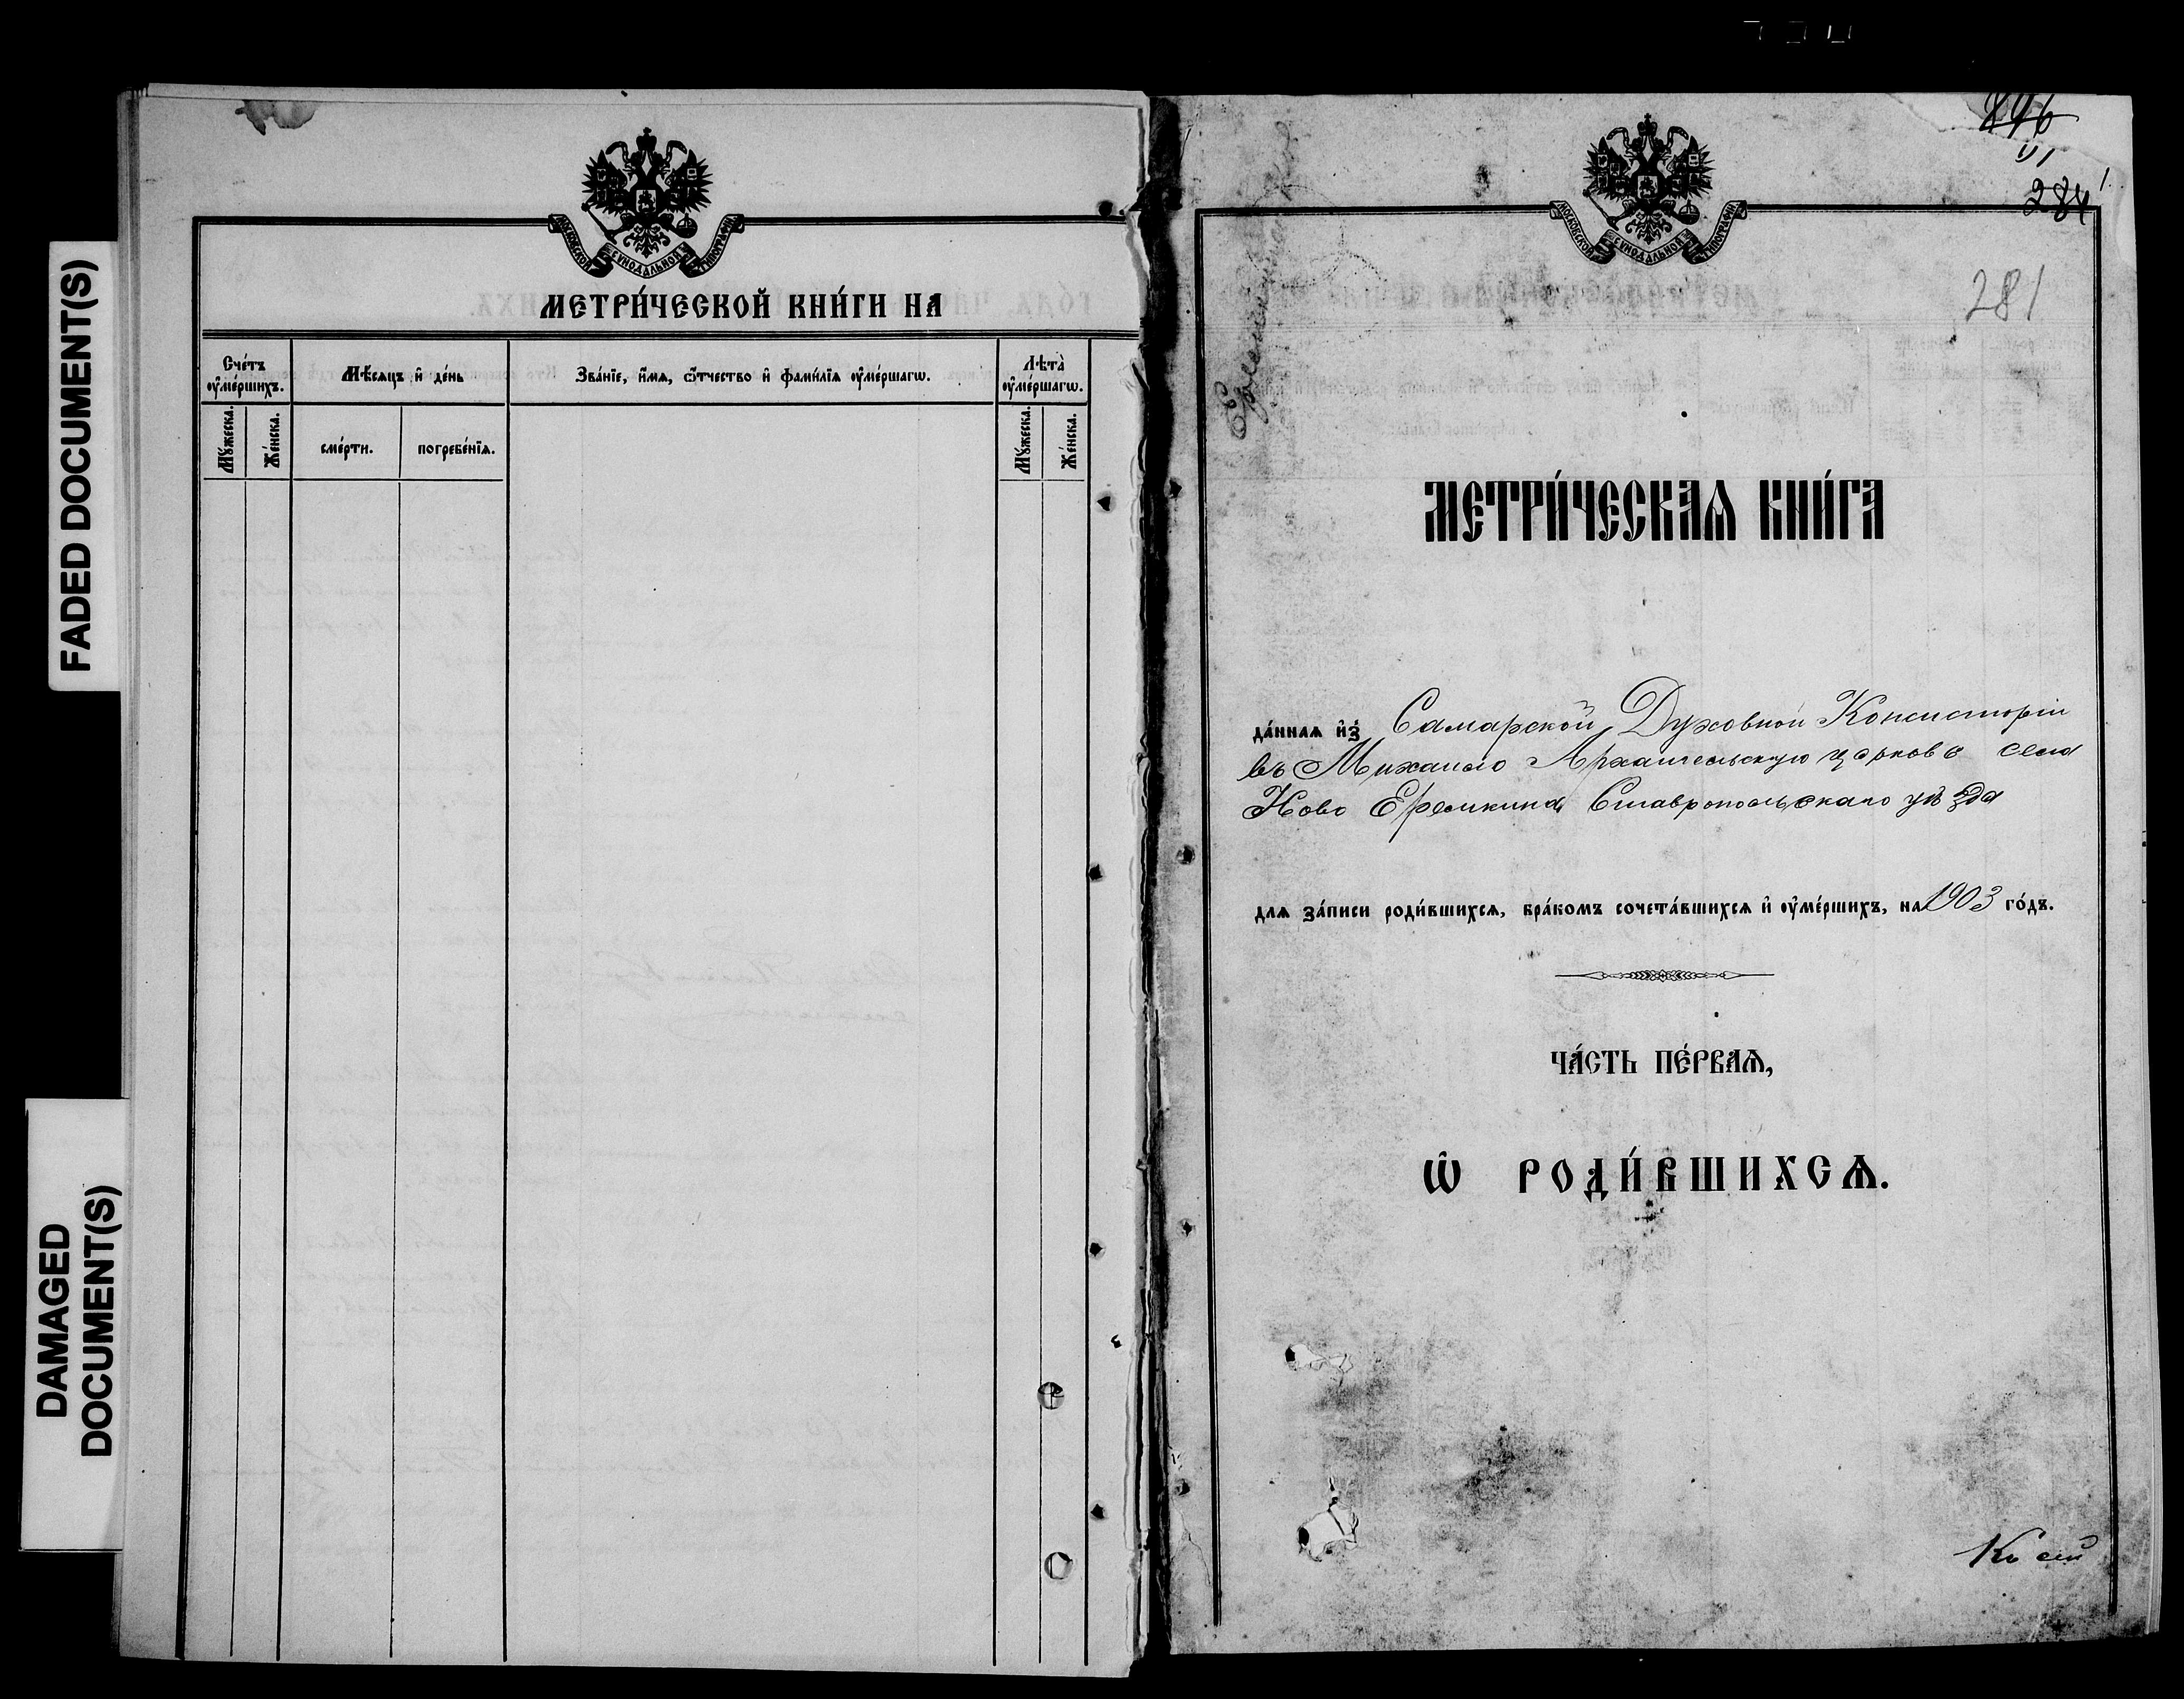 FADED DOCUMENT(S)
DAMAGED
DOCUMENT(S)
МОСКОВСКОЙ СѴНОДАЛЬНОЙ ТИПОГРАФІИ
МЕТРИ́ЧЕСКОЙ КНИ́ГИ НА
Сче́тъ
ᲂу҆ме́ршихъ.
Мѣ́сяцъ и҆ де́нь
Зва́нїе, и҆́мѧ, ѻ҆́тчество и҆ фами́лїѧ ᲂу҆ме́ршагѡ.
Лѣ́та
ᲂу҆ме́ршагѡ.
Мꙋ́жеска.
Же́нска.
сме́рти.
погребе́нїѧ.
Мꙋ́жеска.
Же́нска.
МОСКОВСКОЙ СѴНОДАЛЬНОЙ ТИПОГРАФІИ
846
VI
284
281
МЕТРИ́ЧЕСКАѦ КНИ́ГА
да́ннаѧ и҆з̾ Самарской Духовной Консисторіи
въ Михаило Архангельскую церковь села
Ново Еремкина Ставропольскаго уѣзда
длѧ за́писи роди́вшихсѧ, бра́комъ сочета́вшихсѧ и҆ ᲂу҆ме́ршихъ, на 1903 го́дъ.
ЧА́СТЬ ПЕ́РВАѦ,
Ѡ҆ РОДИ́ВШИХСѦ.
Къ сей